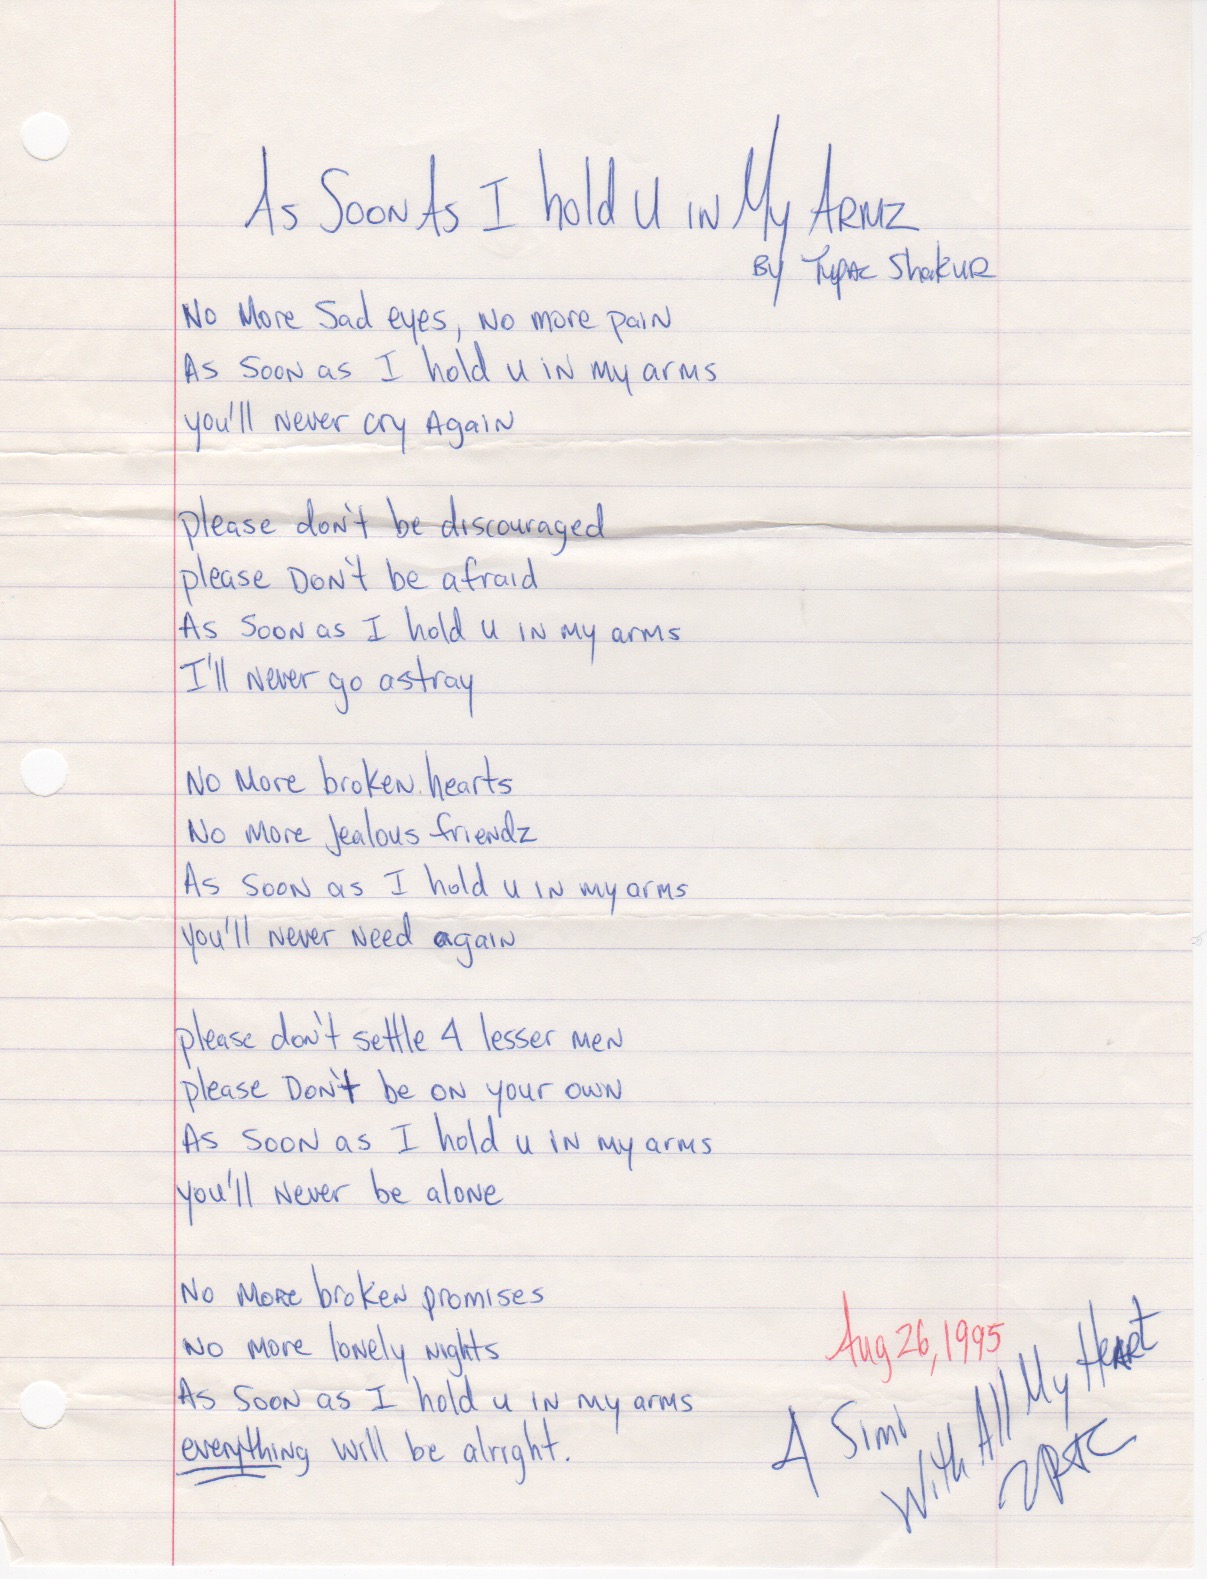 As Soon As I hold U in My Armz
By Tupac Shakur
No More Sad eyes, No more pain
As Soon as I hold u in my arms
you'll Never cry Again
please don't be discouraged
please Don't be afraid
As Soon as I hold u in my arms
I'll Never go astray
No More broken hearts
No More Jealous friendz
As Soon as I hold u in my arms
you'll Never Need again
please don't settle 4 lesser men
please Don't be on your own
As Soon as I hold u in my arms
you'll Never be alone
No More broken promises
No More lonely Nights
As Soon as I hold u in my arms
everything will be alright.
Aug 26, 1995
4 Simi
With All My Heart
2PAC